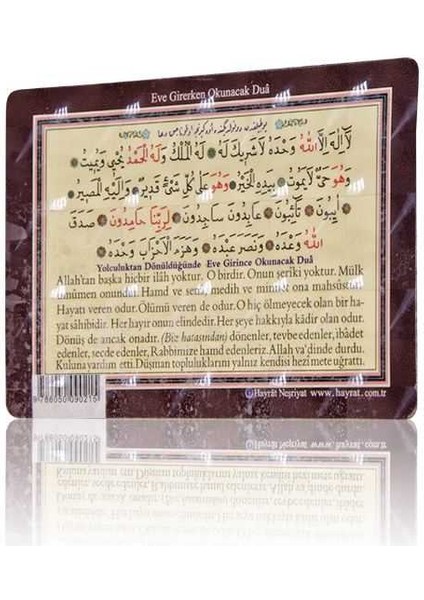 Eve Girerken Okunacak Duâ
لَٓا اِلٰهَ اِلَّا اللّٰهُ وَحْدَهُ لَا شَرِيكَ لَهُ ۞ لَهُ الْمُلْكُ وَلَهُ الْحَمْدُ يُحْيِي وَيُمِيتُ ۞
وَهُوَ حَيٌّ لَا يَمُوتُ ۞ بِيَدِهِ الْخَيْرُ ۞ وَهُوَ عَلٰى كُلِّ شَيْءٍ قَدِيرٌ ۞ وَاِلَيْهِ الْمَصِيرُ
۞ اٰيِبُونَ ۞ تَٓائِبُونَ ۞ عَابِدُونَ سَاجِدُونَ ۞ لِرَبِّنَا حَامِدُونَ ۞ صَدَقَ
اللّٰهُ وَعْدَهُ ۞ وَنَصَرَ عَبْدَهُ ۞ وَهَزَمَ الْاَحْزَابَ وَحْدَهُ ۞
Yolculuktan Dönüldüğünde Eve Girince Okunacak Duâ
Allah'tan başka hiçbir ilâh yoktur. O birdir. Onun şerîki yoktur. Mülk
umûmen onundur. Hamd ve senâ, medih ve minnet ona mahsûstur.
Hayatı veren odur. Ölümü veren de odur. O hiç ölmeyecek olan bir ha-
yat sâhibidir. Her hayır onun elindedir. Her şeye hakkıyla kâdir olan odur.
Dönüş de ancak onadır. (Biz hatasından) dönenler, tevbe edenler, ibâdet
edenler, secde edenler, Rabbimize hamd edenleriz. Allah va'dinde durdu.
Kuluna yardım etti. Düşman topluluklarını yalnız kendisi hezîmete uğrattı.
9786050090215
Hayrât Neşriyat www.hayrat.com.tr